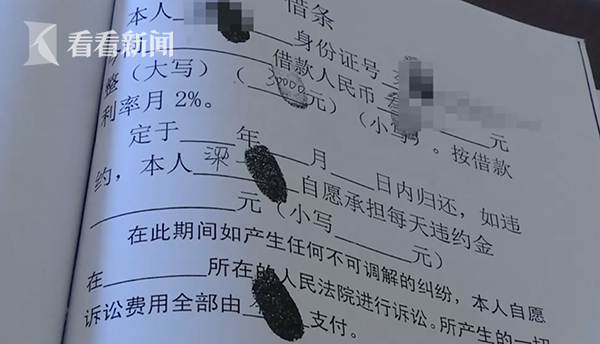 借条
本人 身份证号
看看新闻
借款人民币 元
整（大写）（30000元）（小写）。按借款
利率月2%。
定于 年 月 日内归还，如违
约，本人梁 自愿承担每天违约金
元（小写 元）
在此期间如产生任何不可调解的纠纷，本人自愿
在 所在的人民法院进行诉讼。所产生的一切
诉讼费用全部由 支付。